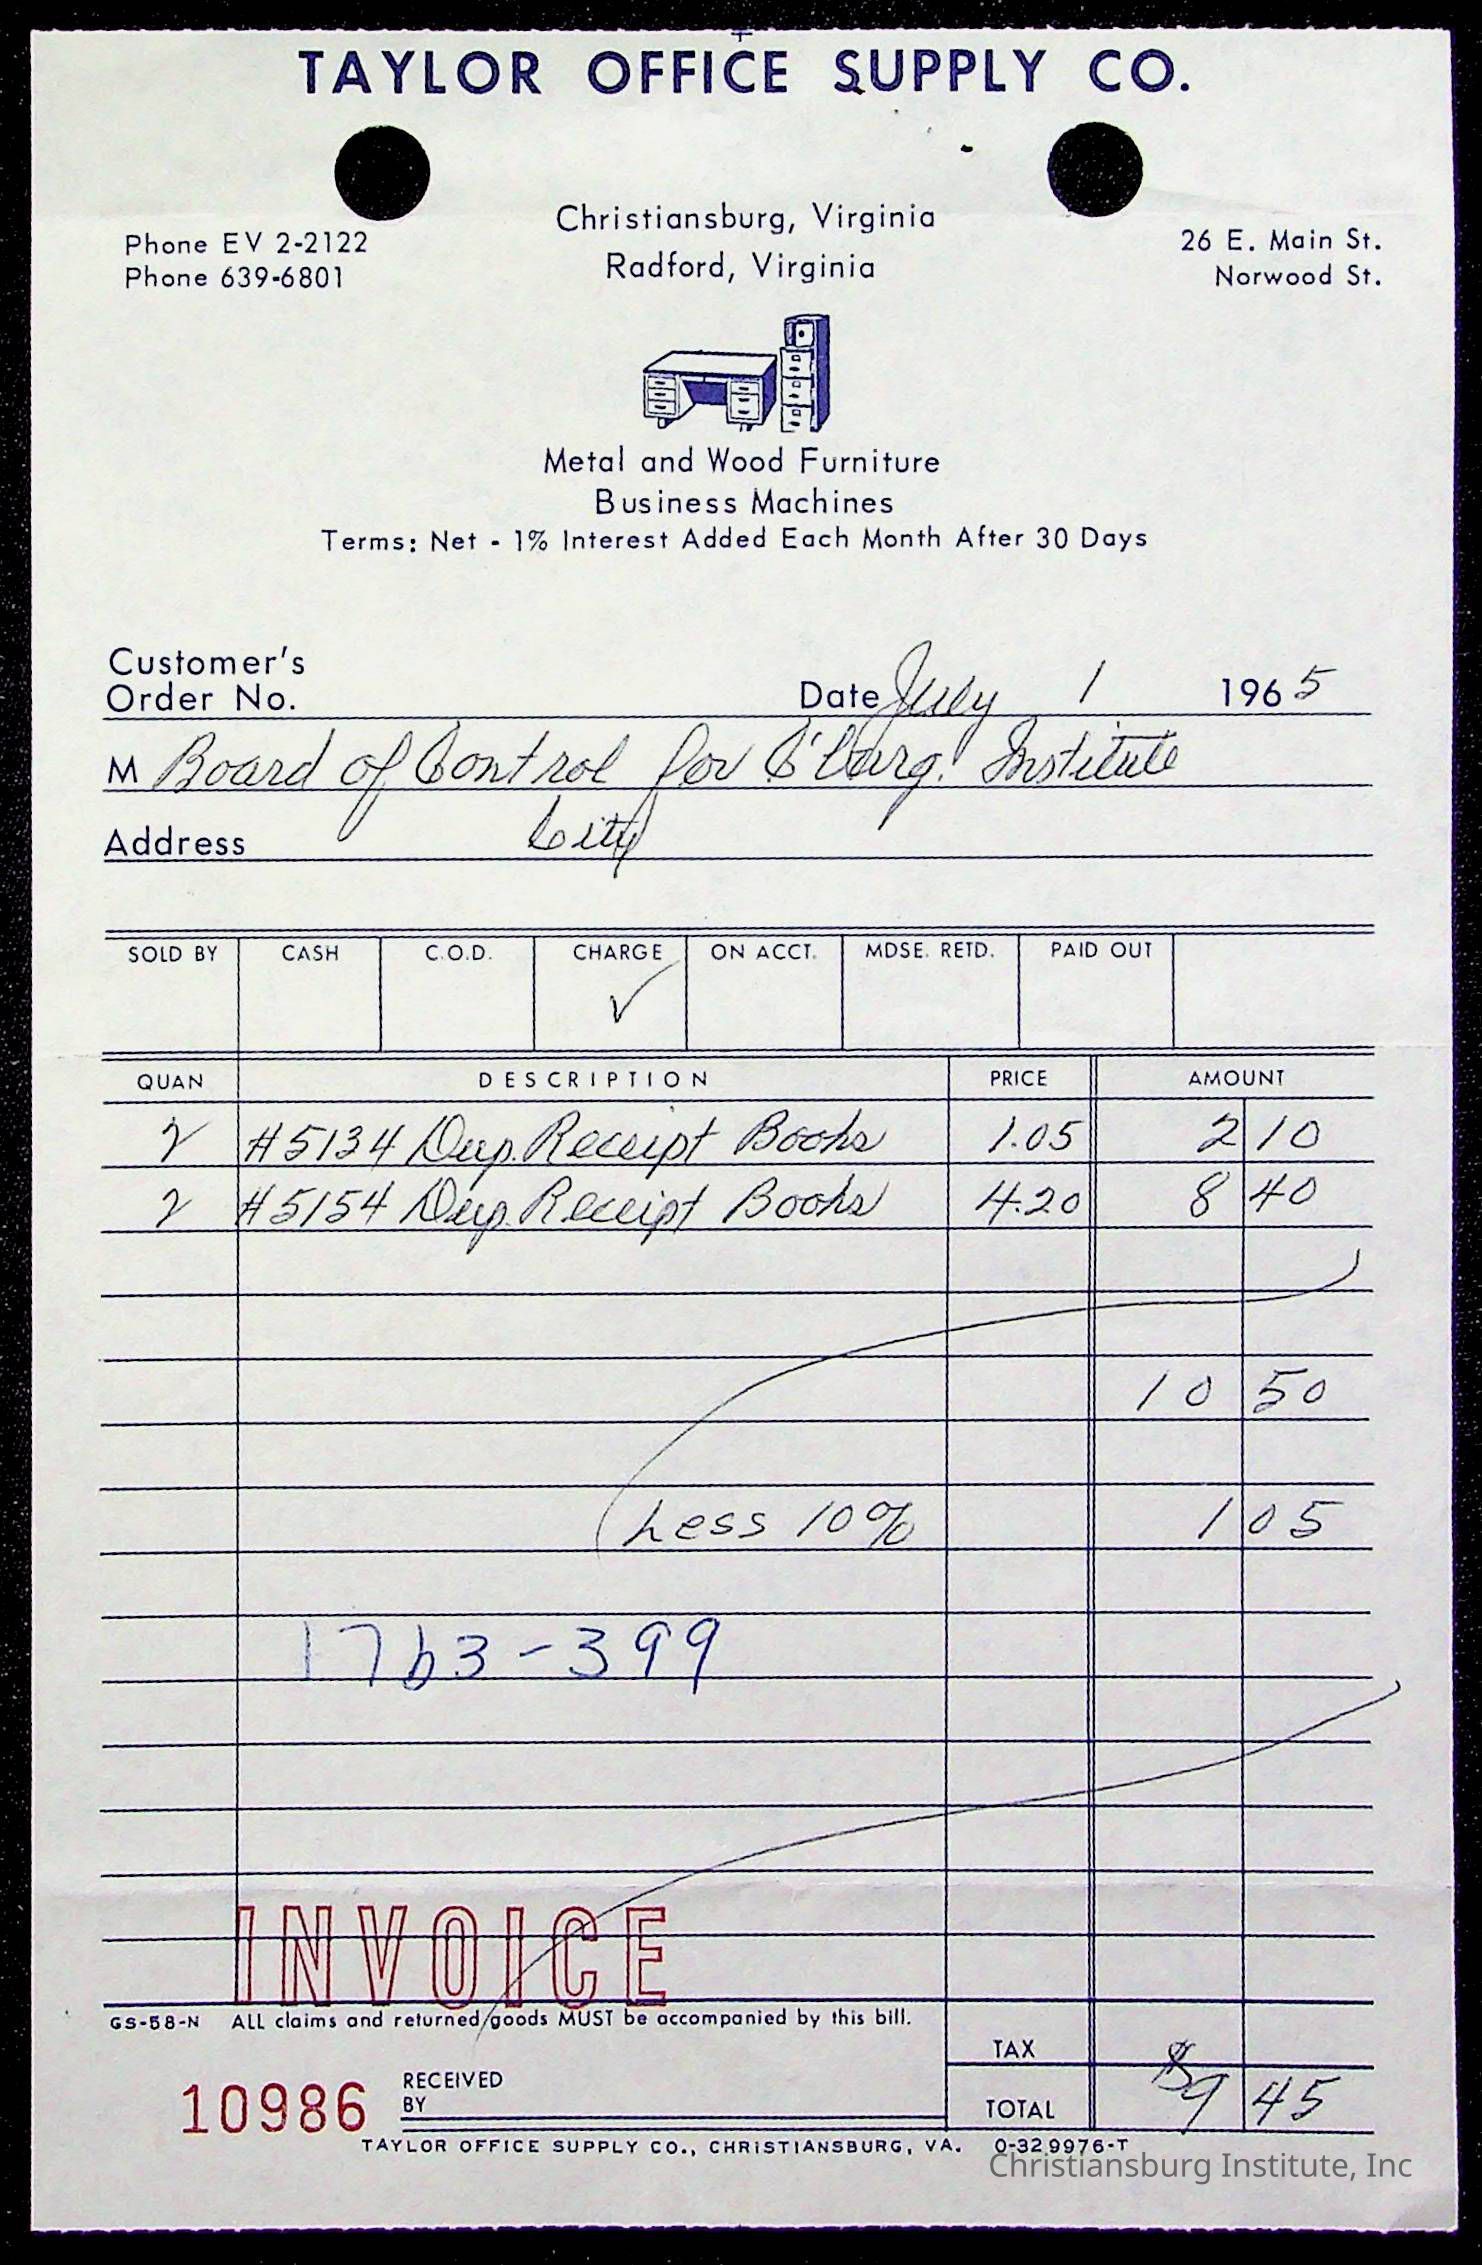 TAYLOR OFFICE SUPPLY CO.
Christiansburg, Virginia
Radford, Virginia
Phone EV 2-2122
Phone 639-6801
26 E. Main St.
Norwood St.
Metal and Wood Furniture
Business Machines
Terms: Net - 1% Interest Added Each Month After 30 Days
Customer's
Order No.
Date July 1 1965
M Board of Control for C'burg. Institute
Address City
SOLD BY CASH C.O.D. CHARGE ON ACCT. MDSE. RETD. PAID OUT
✓
QUAN DESCRIPTION PRICE AMOUNT
2 #5134 Dup. Receipt Books 1.05 2 10
2 #5154 Dup. Receipt Books 4.20 8 40
10 50
Less 10% 1 05
1763-399
INVOICE
GS-58-N ALL claims and returned goods MUST be accompanied by this bill.
TAX
10986 RECEIVED
BY
TOTAL $9 45
TAYLOR OFFICE SUPPLY CO., CHRISTIANSBURG, VA. O-329976-T
Christiansburg Institute, Inc